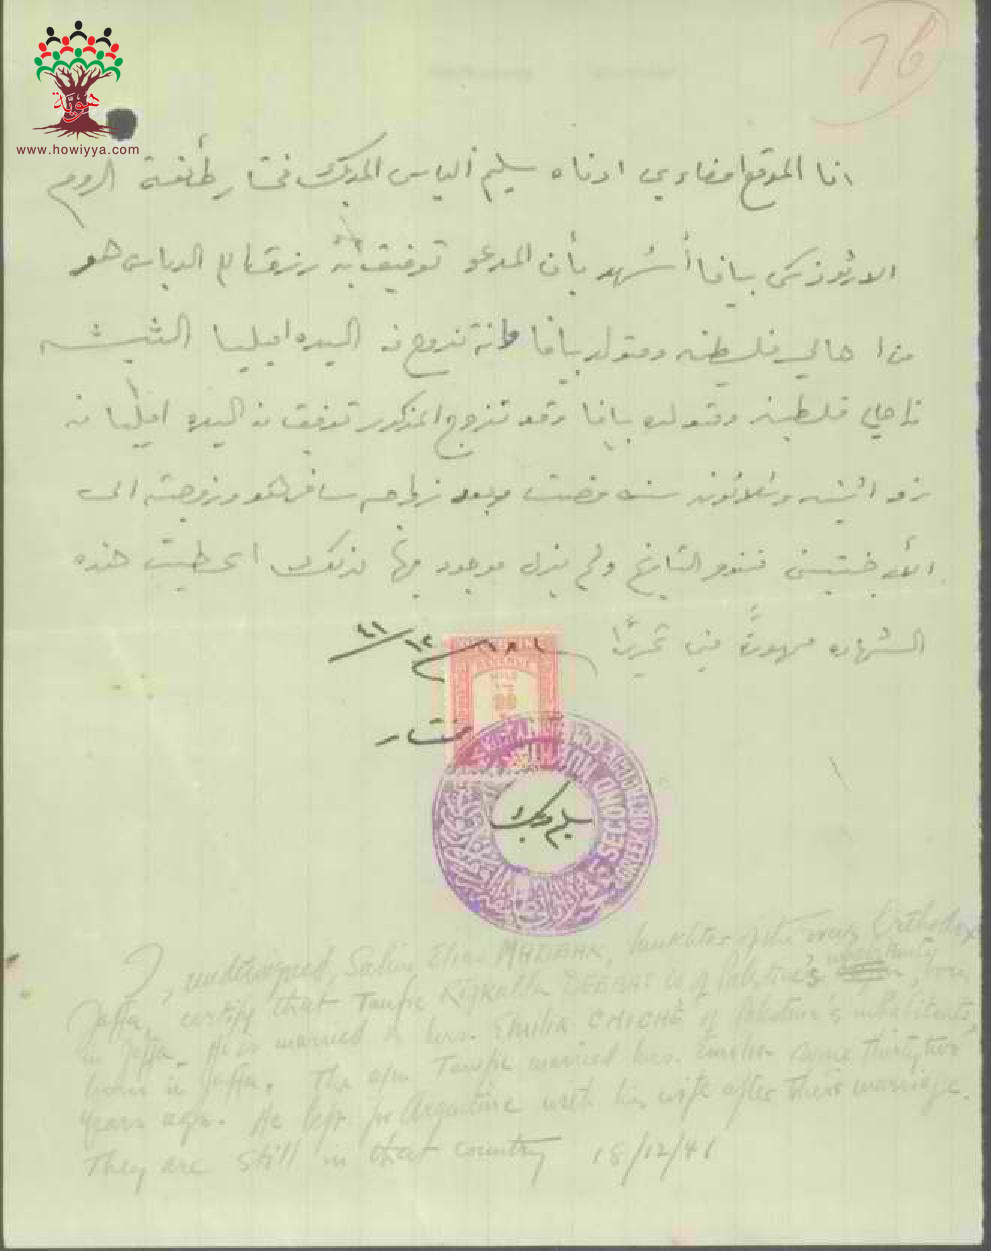 76
هوية
www.howiyya.com
انا الموقع امضاءي ادناه سليم الياس المدبك مختار طائفة الروم
الارثوذكس بيافا أشهد بأن المدعو توفيق رزق الله الدباس هو
من اهالي فلسطين ومتولد بيافا وانه تزوج من السيده اميليا
من اهالي فلسطين ومتولده بيافا وقد تزوج المذكور توفيق من السيده اميليا من
نحو اثنين وثلاثون سنه مضت وبعد زواجه سافر هو وزوجته الى
الأرجنتين ولم يزل موجود فيها لذلك اعطيت هذه
الشهاده ممهورة مني تحريرًا ١٨/١٢/٤١
REVENUE
MILS
مختار
سليم مدبك
SECOND
I, undersigned, Salim Elias MADBAK, Mukhtar of the Orthodox
Jaffa, certify that Taufic Rizkalla DEBBAS is of Palestine's, born
in Jaffa. He is married to Mrs. Emilia CHICHE of Palestine's inhabitants,
born in Jaffa. The afm Taufic married Mrs. Emilia some thirty two
years ago. He left for Argentine with his wife after their marriage.
They are still in that country 18/12/41